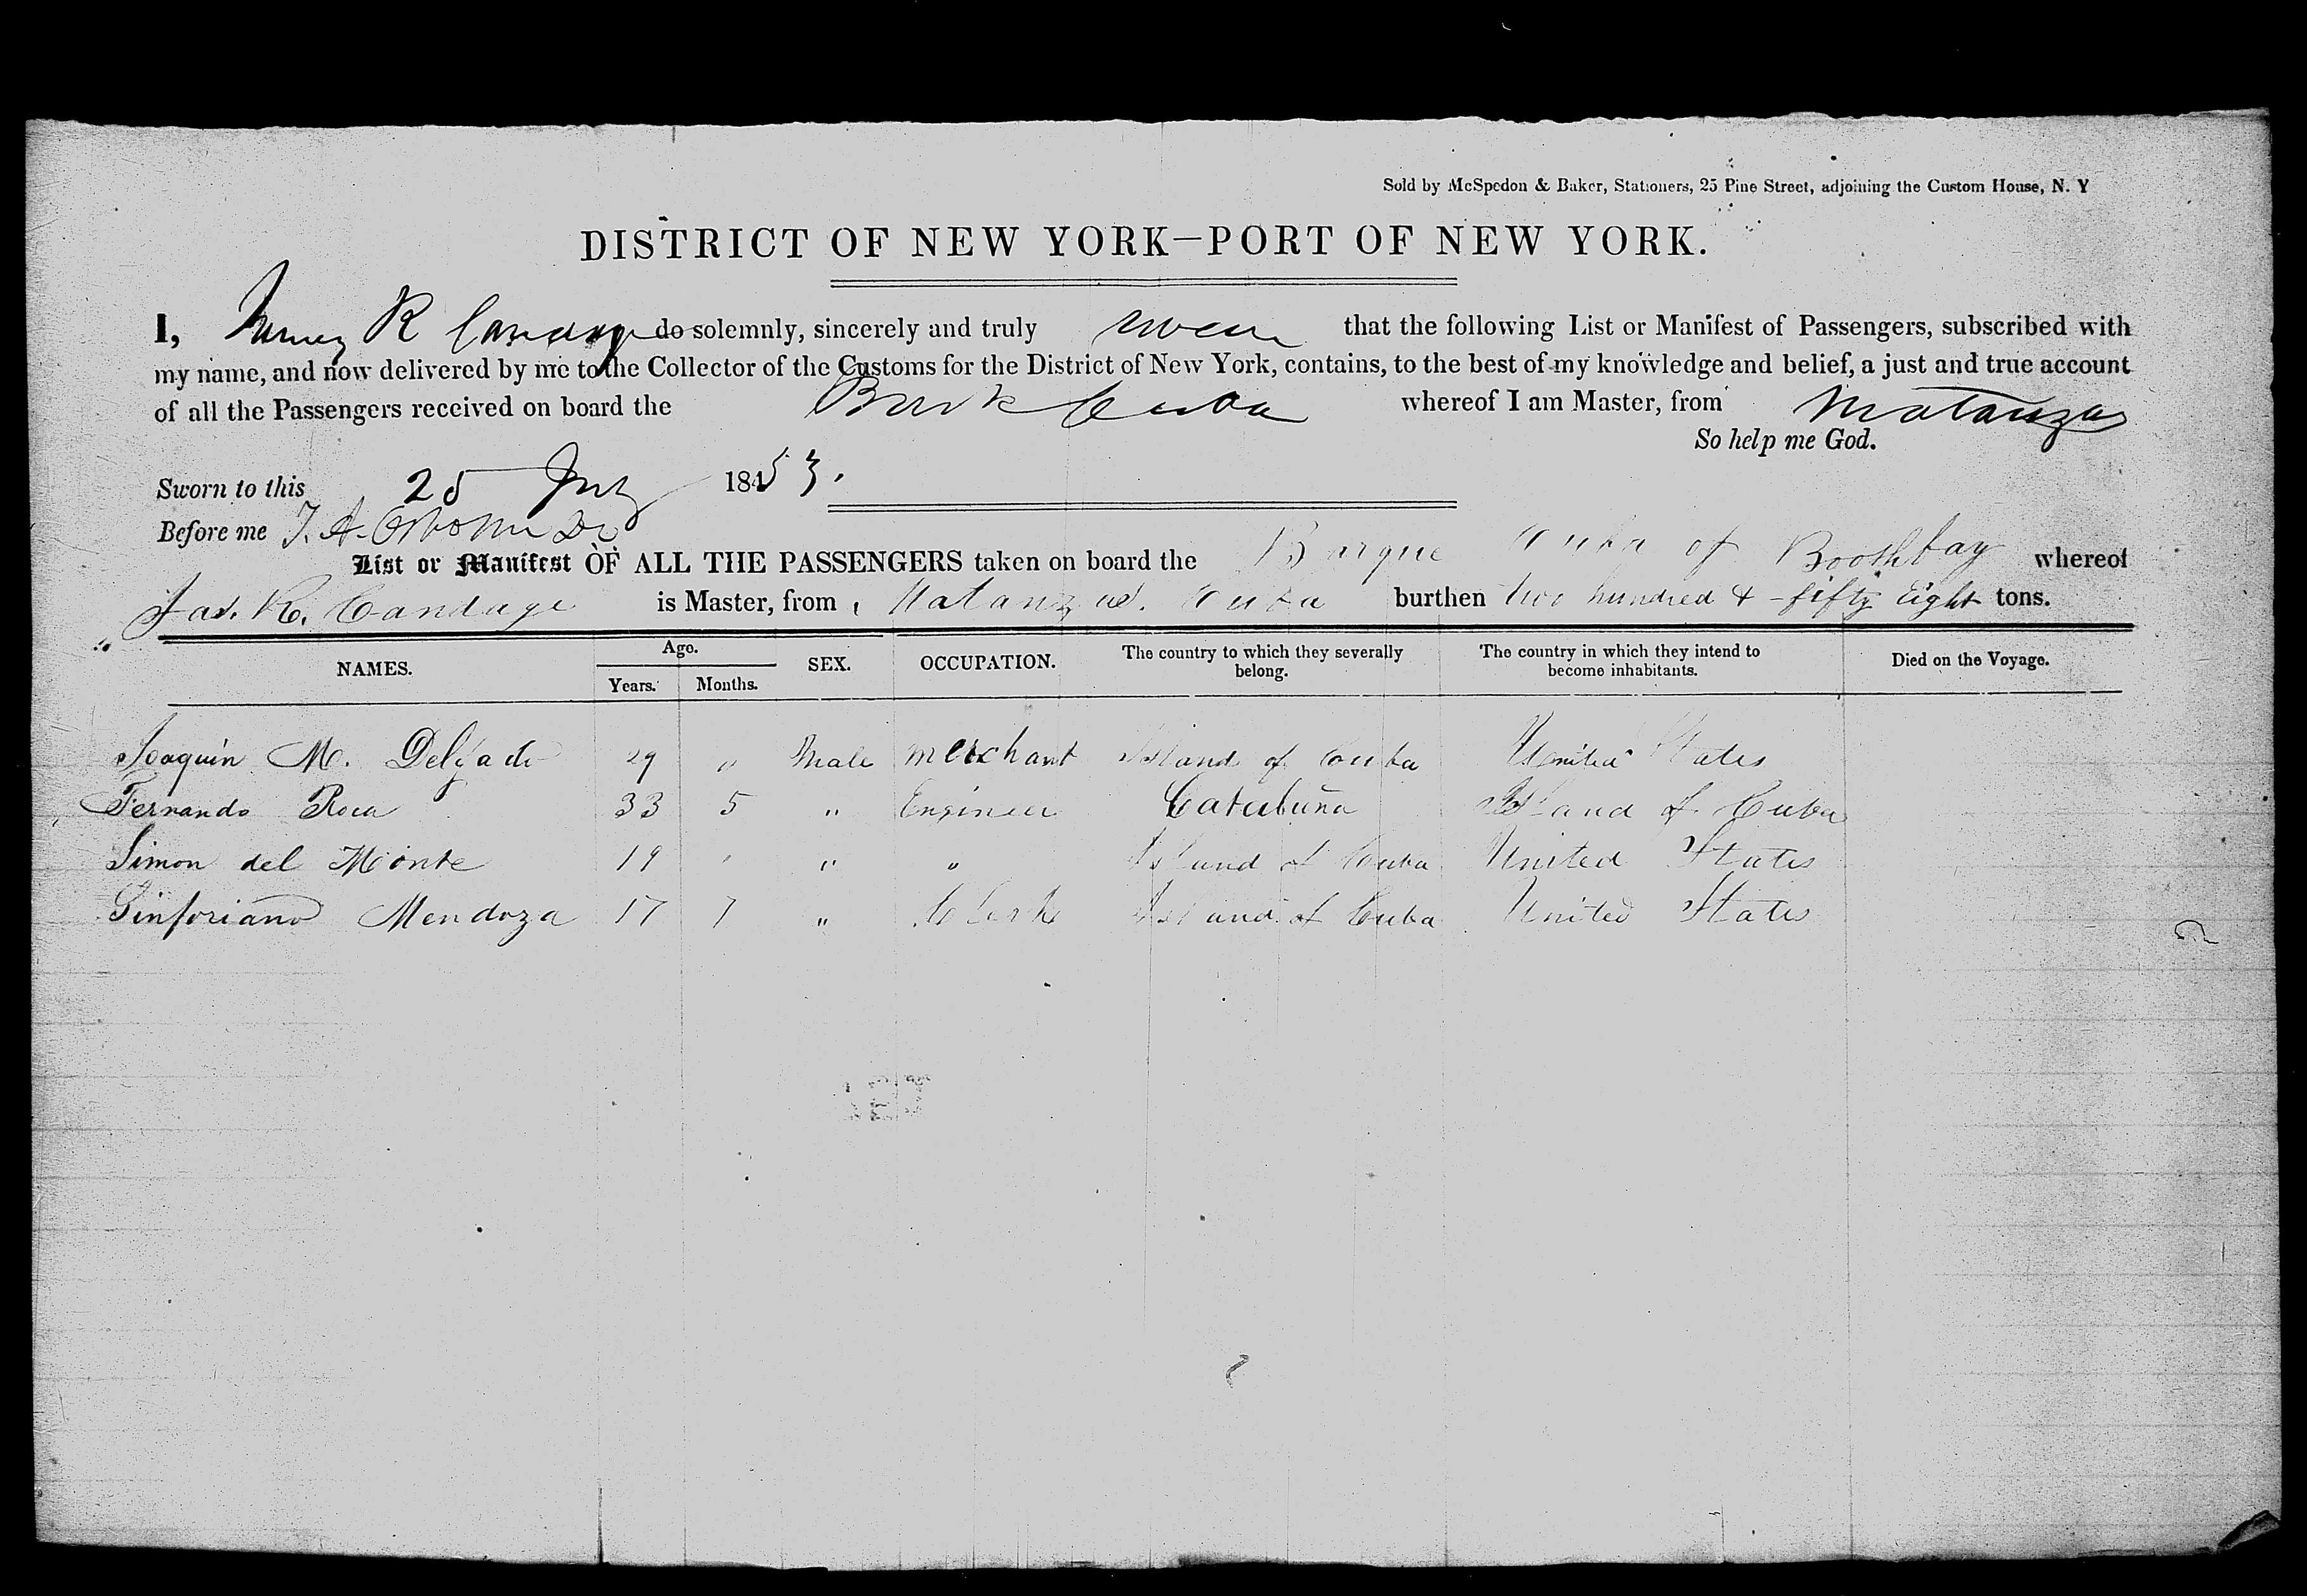 Sold by McSpedon & Baker, Stationers, 25 Pine Street, adjoining the Custom House, N. Y
DISTRICT OF NEW YORK—PORT OF NEW YORK.
I, James R Candage do solemnly, sincerely and truly swear that the following List or Manifest of Passengers, subscribed with
my name, and now delivered by me to the Collector of the Customs for the District of New York, contains, to the best of my knowledge and belief, a just and true account
of all the Passengers received on board the Bark Cuba whereof I am Master, from Matanzas
So help me God.
Sworn to this 25 July 1853.
Before me T. A. Osborn
List or Manifest OF ALL THE PASSENGERS taken on board the Barque Cuba of Boothbay whereof
Jas. R. Candage is Master, from Matanzas. Cuba burthen two hundred & fifty Eight tons.
NAMES. Age. Years. Months. SEX. OCCUPATION. The country to which they severally belong. The country in which they intend to become inhabitants. Died on the Voyage.
Joaquin M. Delgado 29 " Male merchant Island of Cuba United States
Fernando Roca 33 5 " Engineer Cataluña Island of Cuba
Simon del Monte 19 " " " Island of Cuba United States
Sinforiano Mendoza 17 7 " Clerk Island of Cuba United States